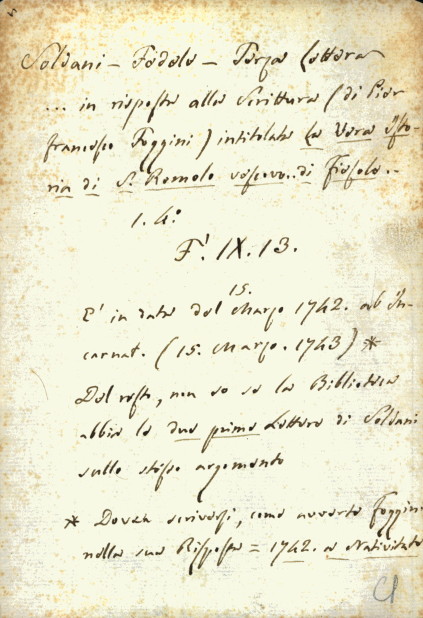 Soldani - Fedele - Terza Lettera
... in risposta alla Scrittura (di Pier
francesco Foggini) intitolata la Vera Isto-
ria di S. Romolo vescovo.. di Fiesole..
1. 4º
F'. IX. 13.
E' in data del 15. Marzo 1742. ab In-
carnat. (15. Marzo. 1743) *
Del resto, non so se la Biblioteca
abbia le due prime Lettere di Soldani
sullo stesso argomento
* Dovea scriversi, come avverte Foggini
nella sua Risposta = 1742. a Nativitate